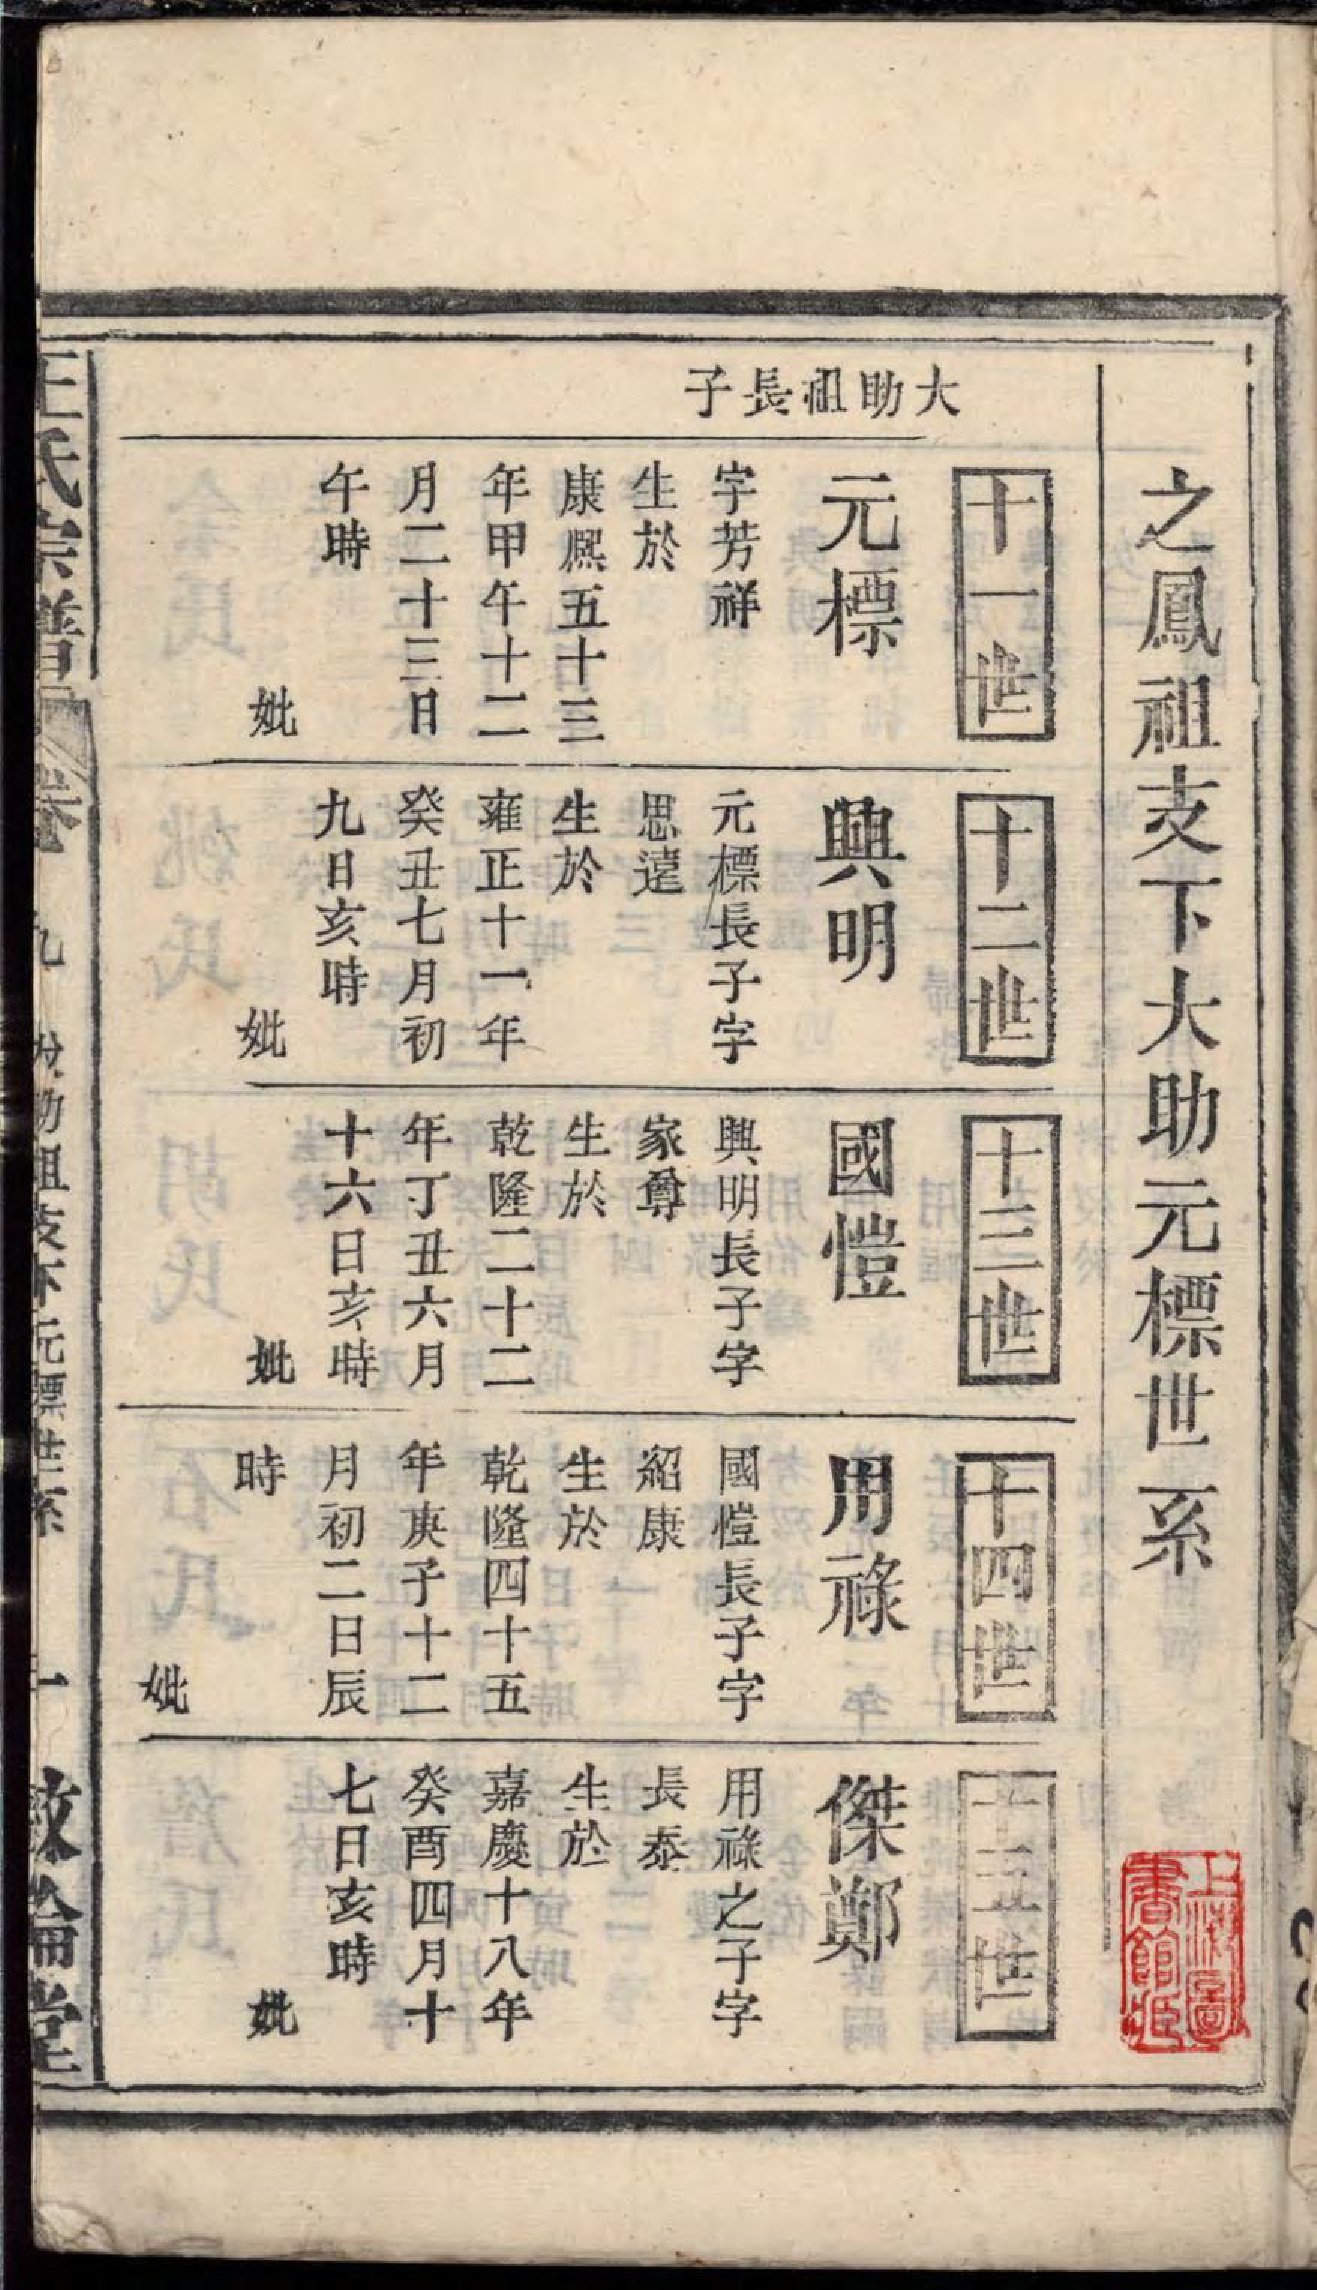 之鳳祖支下大助元標世系
大助祖長子
十一世
元標
字芳祥
生於
康熙五十三
年甲午十二
月二十三日
午時
妣
十二世
興明
元標長子字
思遠
生於
雍正十一年
癸丑七月初
九日亥時
妣
十三世
國愷
興明長子字
家尊
生於
乾隆二十二
年丁丑六月
十六日亥時
妣
十四世
用祿
國愷長子字
紹康
生於
乾隆四十五
年庚子十二
月初二日辰
時
妣
十五世
傑鄭
用祿之子字
長泰
生於
嘉慶十八年
癸酉四月十
七日亥時
妣
王氏宗譜
卷
九
助祖支下元標世系
一
敘倫堂
上海圖書館藏